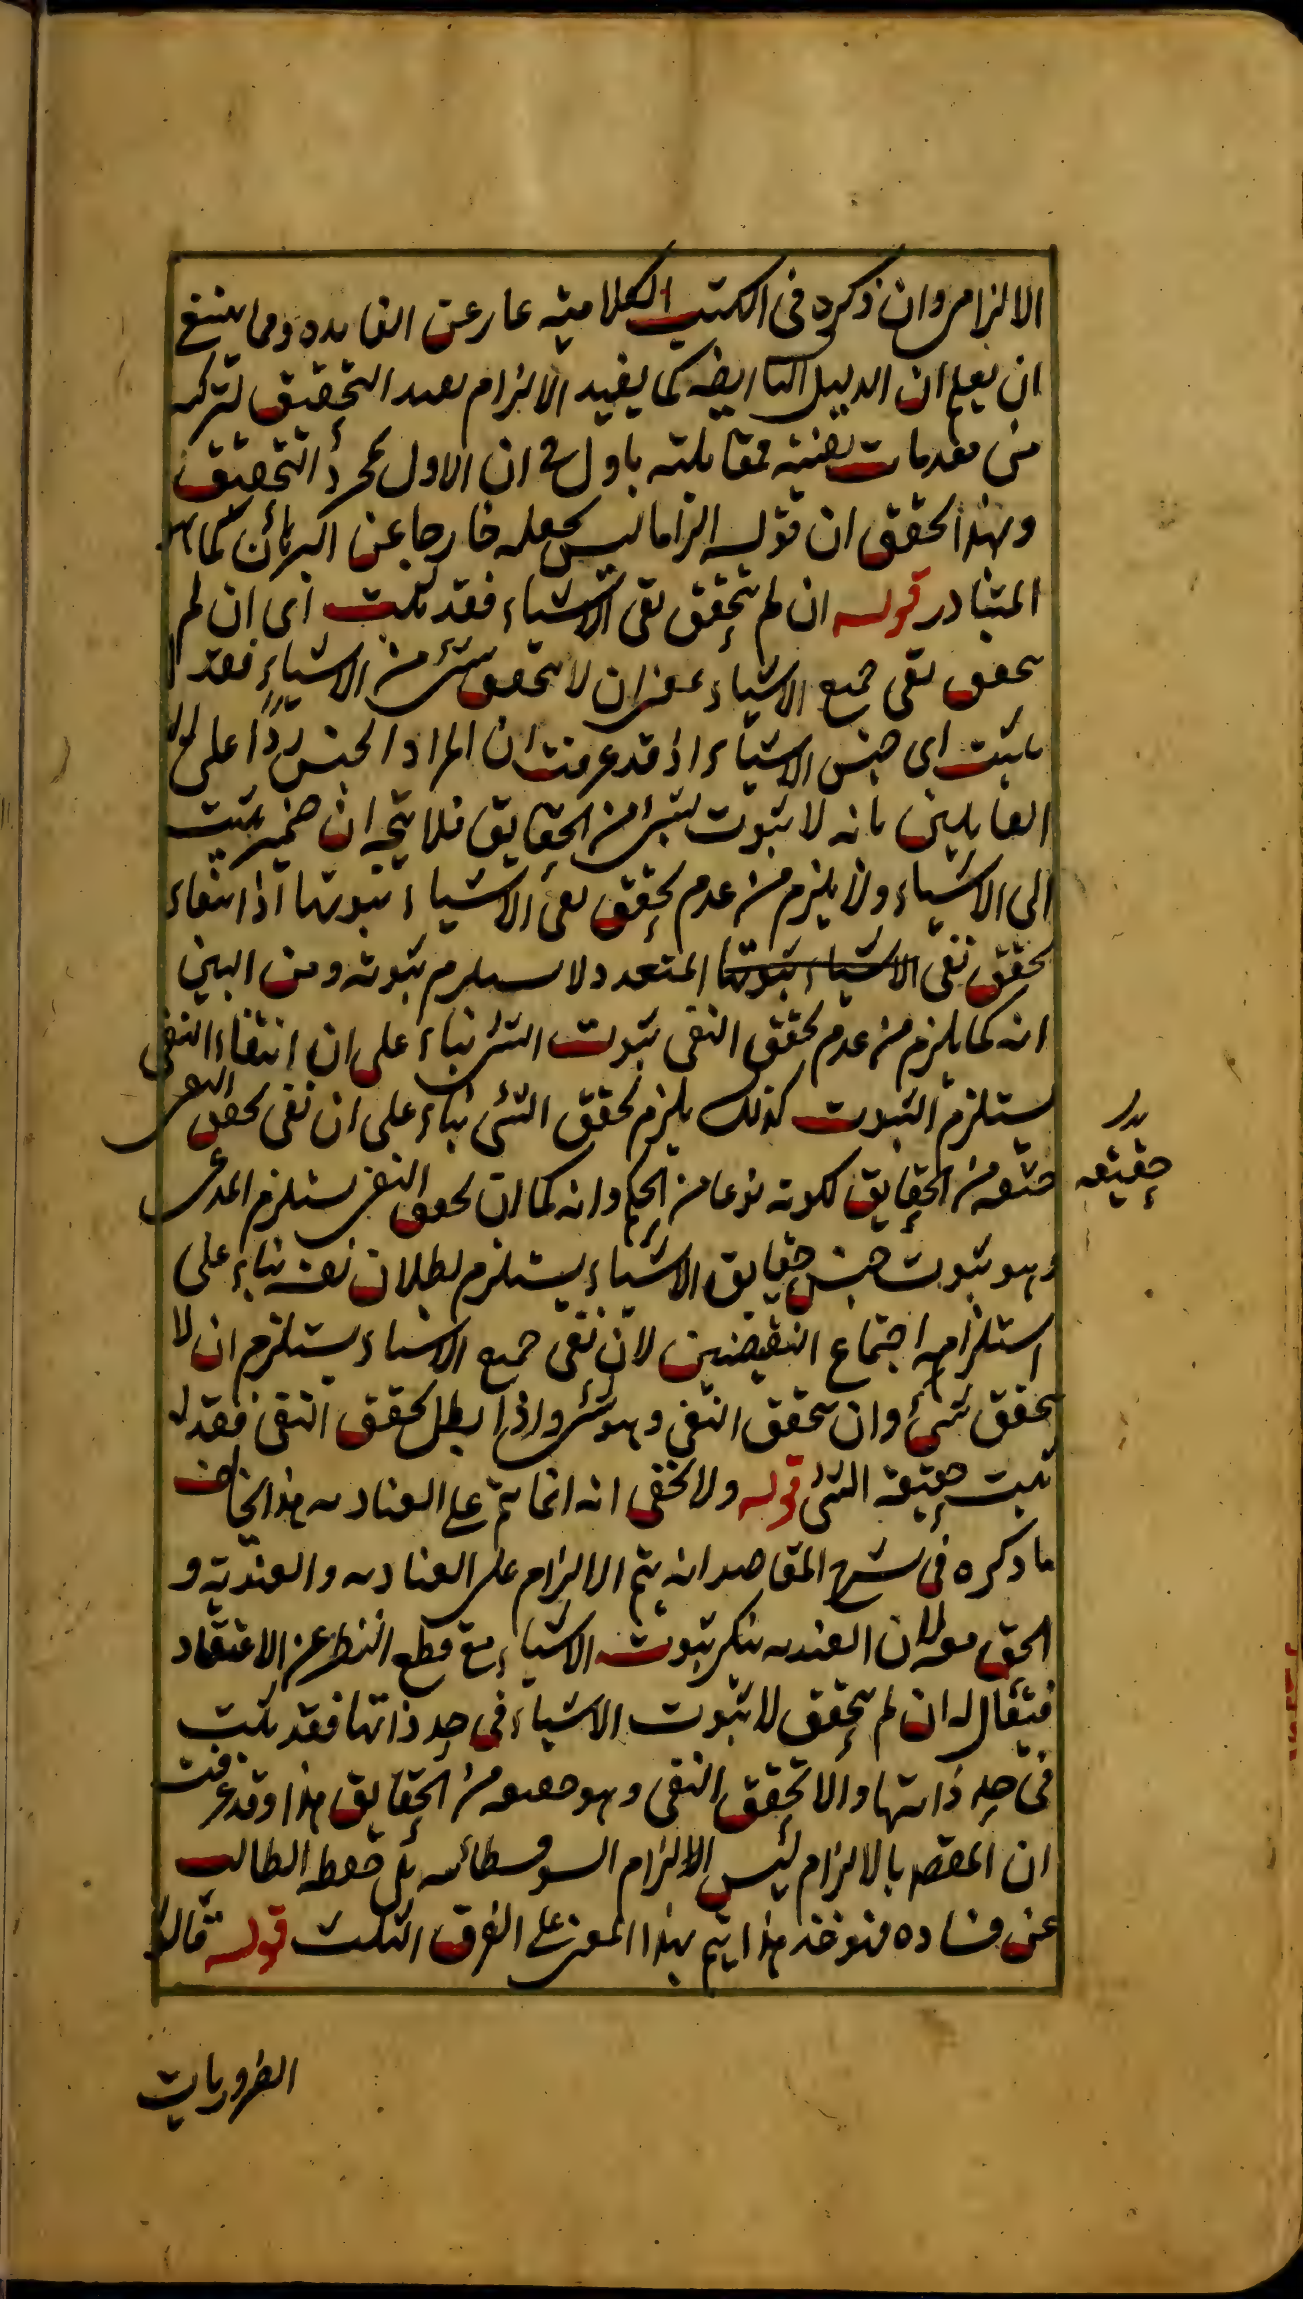 الالزام وان ذكره فى الكتب الكلامية عار عن الفايده ومما ينبغى
ان يعلم ان الدليل الثا ايضا كما يفيد الالزام يفيد التحقيق لتركبه
من مقدمات يقينية فمقابلته باول ان الاول لمجرد التحقيق
وبهذا تحقق ان قوله الزاما ليس بجعله خارجا عن البرهان كما هو
المتبادر قوله ان لم يتحقق نفى الاشياء فقد ثبت اى ان لم
يتحقق نفى جميع الاشياء بمعنى ان لا يتحقق شئ من الاشياء فقد
ثبت اى جنس الاشياء اذ قد عرفت ان المراد الجنس ردا على
القايلين بانه لا ثبوت لشئ من الحقايق فلا يتجه ان ضمير ثبت
الى الاشياء ولا يلزم من عدم تحقق نفى الاشياء ثبوتها اذ انتفاء
تحقق نفى الاشياء ثبوتها المتعدد لا يستلزم ثبوته ومن البين
انه كما يلزم من عدم تحقق النفى ثبوت الشئ بناء على ان انتفاء النفى
يستلزم الثبوت كذلك يلزم تحقق الشئ بناء على ان نفى تحقق النفى
حقيقة من الحقايق لكونه نوعا من الحكم وانه كما ان تحقق النفى يستلزم المدعى
بدل
حقيقه
وهو ثبوت جنس حقايق الاشياء يستلزم بطلان نفيه بناء على
استلزامه اجتماع النقيضين لان نفى جميع الاشياء يستلزم ان لا
يتحقق شئ وان يتحقق النفى وهو شئ واذا بطل تحقق النفى فقد
ثبت حقيقة الشئ قوله ولا يخفى انه انما يتم على العنادية هذا يخالف
ما ذكره فى شرح المقاصد انه يتم الالزام على العنادية والعندية و
الحق معه لان العنديه ينكر ثبوت الاشياء مع قطع النظر عن الاعتقاد
فيقال له ان لم يتحقق لا ثبوت الاشياء فى حد ذاتها فقد ثبت
فى حد ذاتها والا تحقق النفى وهو حقيقة من الحقايق هذا وقد عرفت
ان المقصد بالالزام ليس الالزام السوفسطائيه بل حفظ الطالب
عن فساده فنوخذ هذا يتم بهذا المعنى على الفرق الثلث قوله قالوا
الضروريات